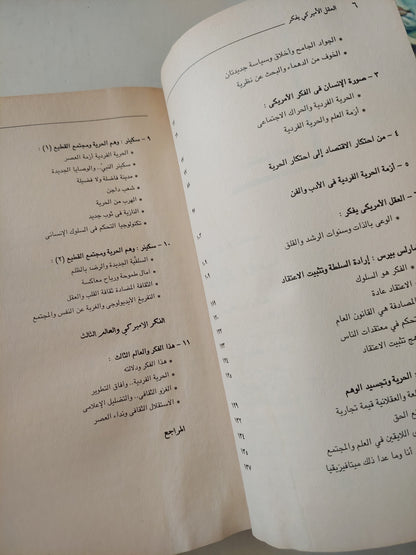 ٦ العقل الأميركي يفكر
• الجواد الجامح وأخلاق وسياسة جديدتان
• الخوف من الدهماء والبحث عن نظرية
٣ – صورة الإنسان فى الفكر الأمريكى :
• الحرية الفردية والحراك الاجتماعى
• أزمة العلم والحرية الفردية
٤ – من احتكار الاقتصاد إلى احتكار الحرية
٥ – أزمة الحرية الفردية فى الأدب والفن
العقل الأمريكى يفكر :
• الوعى بالذات وسنوات الرشد والقلق
بيرس : إرادة السلطة وتثبيت الاعتقاد
الفكر هو السلوك
الاعتقاد عادة
الصدفة هى القانون العام
التحكم فى معتقدات الناس
تثبيت الاعتقاد
الحرية وتجسيد الوهم
والعقلانية قيمة تجارية
الحق
اللايقين فى العلم والمجتمع
أنا وما عدا ذلك ميتافيزيقيا
١٢٩
١٣١
١٣٢
١٣٥
١٣٧
٩ – سكينر : وهم الحرية ومجتمع القطيع (١) :
• الحرية الفردية أزمة العصر
• سكينر النبى.. والوصايا الجديدة
• مدينة فاضلة ولا فضيلة
• شعب داجن
• الهرب من الحرية
• النازية فى ثوب جديد
• تكنولوجيا التحكم فى السلوك الإنسانى
١٠ – سكينر : وهم الحرية ومجتمع القطيع (٢) :
• السلفية الجديدة والرضا بالظلم
• آمال طموحة ورياح معاكسة
• الثقافة المضادة ثقافة القلب والعقل
• التفريغ الأيديولوجى والغربة عن النفس والمجتمع
الفكر الأميركي والعالم الثالث
١١ – هذا الفكر والعالم الثالث :
• هذا الفكر ودلالته
• الحرية الفردية.. وآفاق التطوير
• الغزو الثقافى.. والتضليل الإعلامى
• الاستقلال الثقافى ونداء العصر
المراجع